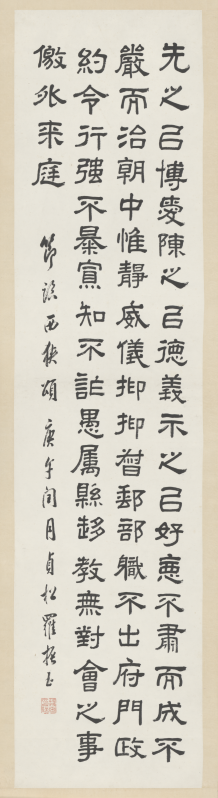 先之㠯博愛陳之㠯德義示之㠯好惡不肅而成不
嚴而治朝中惟靜威儀抑抑督郵部職不出府門政
約令行强不暴寡知不詐愚属縣趍教無對會之事
儌外来庭
節臨西狹頌 庚午閏月貞松羅振玉